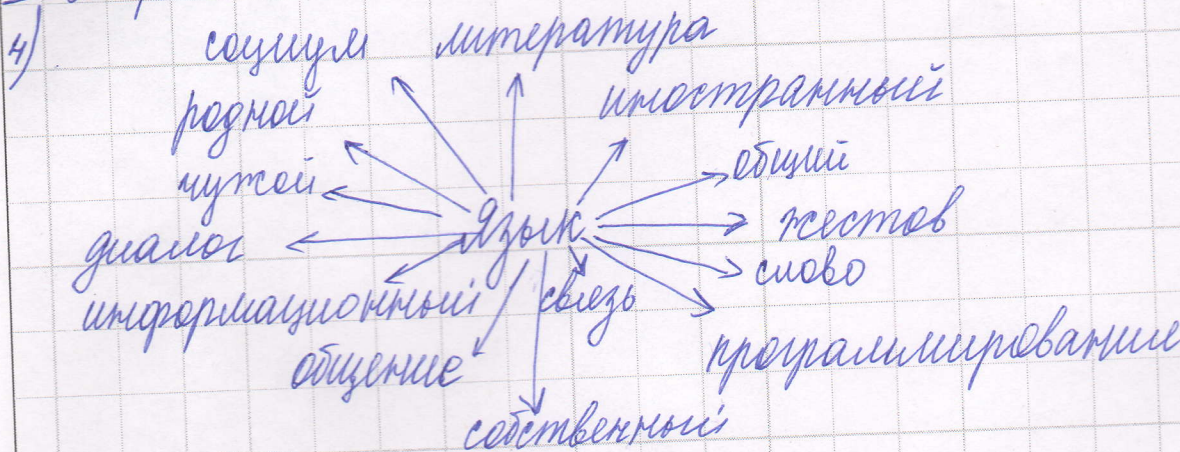 4)
социум литература
родной иностранный
чужой общий
язык жестов
диалог слово
информационный связь
общение программирование
собственный